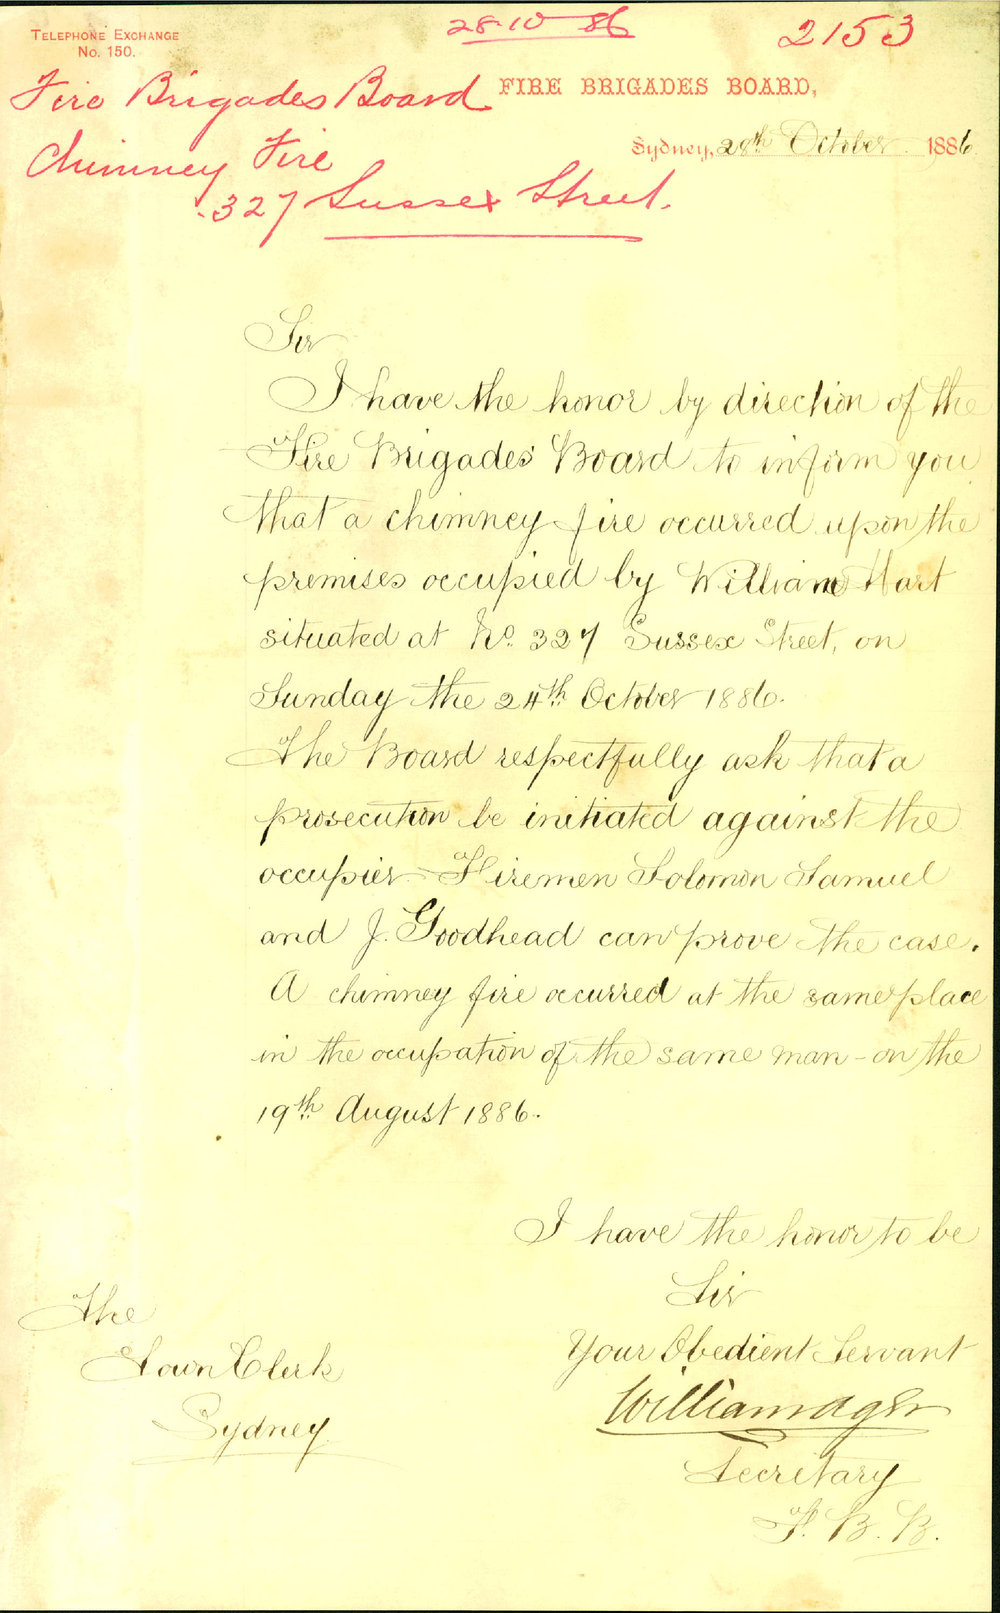 TELEPHONE EXCHANGE
No. 150.
28-10-86
2153
Fire Brigades Board
FIRE BRIGADES BOARD,
Chimney Fire
327 Sussex Street.
Sydney, 28th October 1886
Sir
I have the honor by direction of the
Fire Brigades Board to inform you
that a chimney fire occurred upon the
premises occupied by William Hart
situated at No. 327 Sussex Street, on
Sunday the 24th October 1886.
The Board respectfully ask that a
prosecution be initiated against the
occupier. Firemen Solomon Samuel
and J. Goodhead can prove the case.
A chimney fire occurred at the same place
in the occupation of the same man - on the
19th August 1886.
I have the honor to be
Sir
Your Obedient Servant
William Ager
Secretary
F. B. B.
The
Town Clerk
Sydney